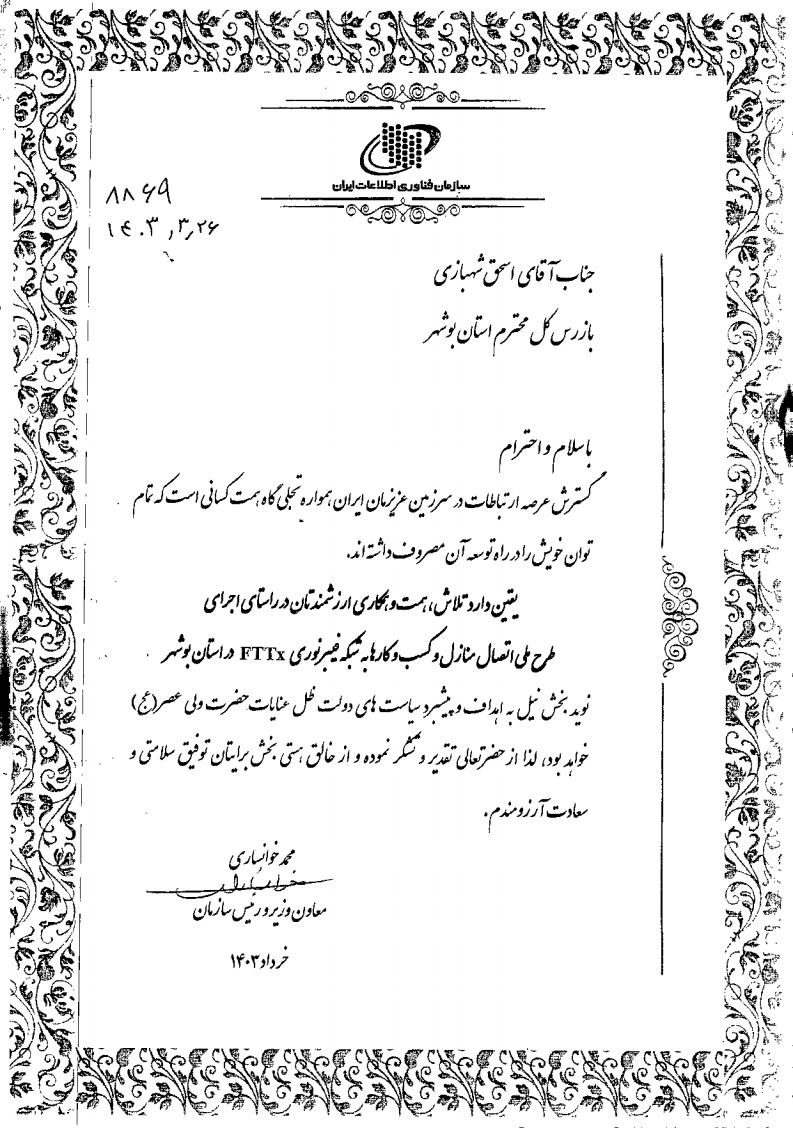 سازمان فناوری اطلاعات ایران
۸۸۶۹
۱۴۰۳,۳,۲۶
جناب آقای اسحق شهبازی
بازرس کل محترم استان بوشهر
باسلام و احترام
گسترش عرصه ارتباطات در سرزمین عزیزمان ایران همواره تجلی گاه همت کسانی است که تمام
توان خویش را در راه توسعه آن مصروف داشته اند.
یقین دارد تلاش، همت و همکاری ارزشمندتان در راستای اجرای
طرح ملی اتصال منازل و کسب و کارها به شبکه فیبرنوری FTTx در استان بوشهر
نوید بخش نیل به اهداف و پیشبرد سیاست های دولت ظل عنایات حضرت ولی عصر(عج)
خواهد بود، لذا از حضرتعالی تقدیر و تشکر نموده و از خالق هستی بخش برایتان توفیق سلامتی و
سعادت آرزومندم.
محمد خوانساری
معاون وزیر و رئیس سازمان
خرداد ۱۴۰۳